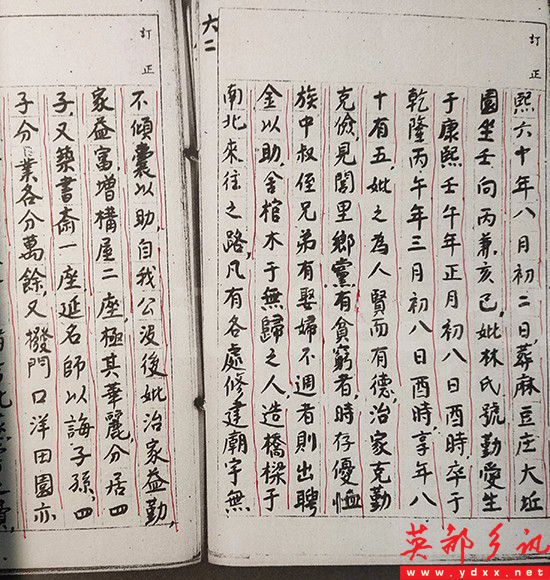 訂正
熙六十年八月初二日,葬麻豆庄大坵
園坐壬向丙兼亥巳,妣林氏號勤愛生
于康熙壬午年正月初八日酉時,卒于
乾隆丙午年三月初八日酉時,享年八
十有五,妣之為人賢而有德,治家克勤
克儉,見閭里鄉黨有貧窮者,時存優恤
族中叔侄兄弟有娶婦不週者則出聘
金以助,舍棺木于無歸之人,造橋樑于
南北來往之路,凡有各處修建廟宇無
六二
訂正
不傾囊以助,自我公沒後妣治家益勤,
家益富增構屋二座極其華麗,分居四
子,又築書齋一座,延名師以誨子孫,四
子分業各分萬餘,又撥門口洋田園亦
英都乡讯
www.ydxx.net